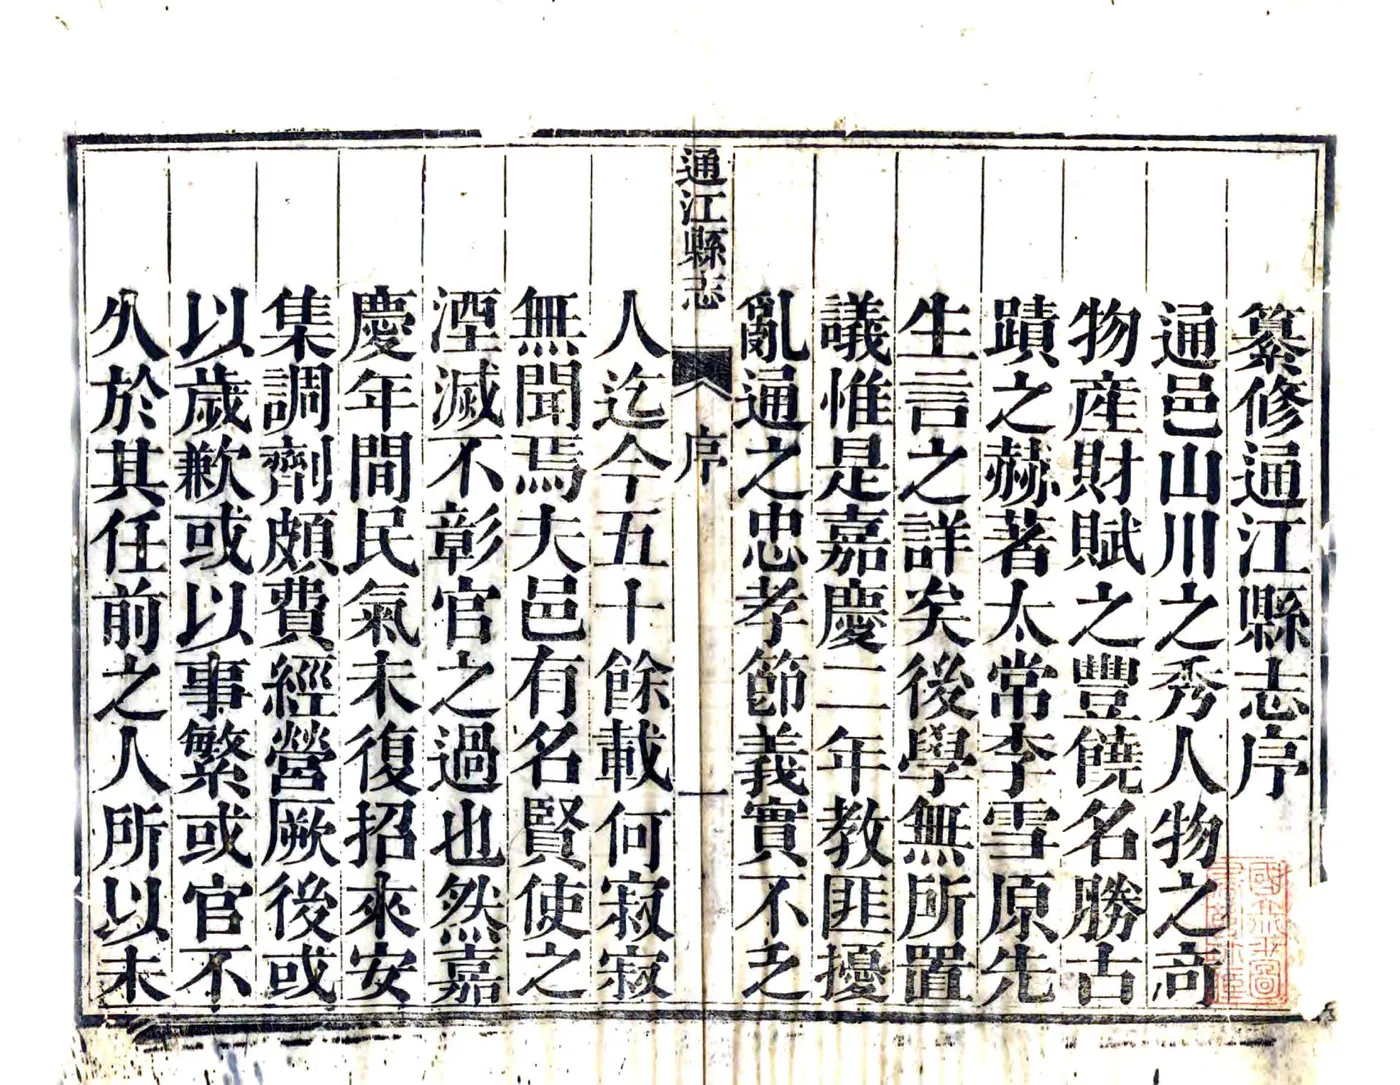 纂修通江縣志序
通邑山川之秀人物之奇
物産財賦之豐饒名勝古
蹟之赫著太常李雪原先
生言之詳矣後學無所置
議惟是嘉慶二年教匪擾
亂通之忠孝節義實不乏
通江縣志
序
一
人迄今五十餘載何寂寂
無聞焉夫邑有名賢使之
湮滅不彰官之過也然嘉
慶年間民氣未復招來安
集調劑頗費經營厥後或
以歲歉或以事繁或官不
久於其任前之人所以未